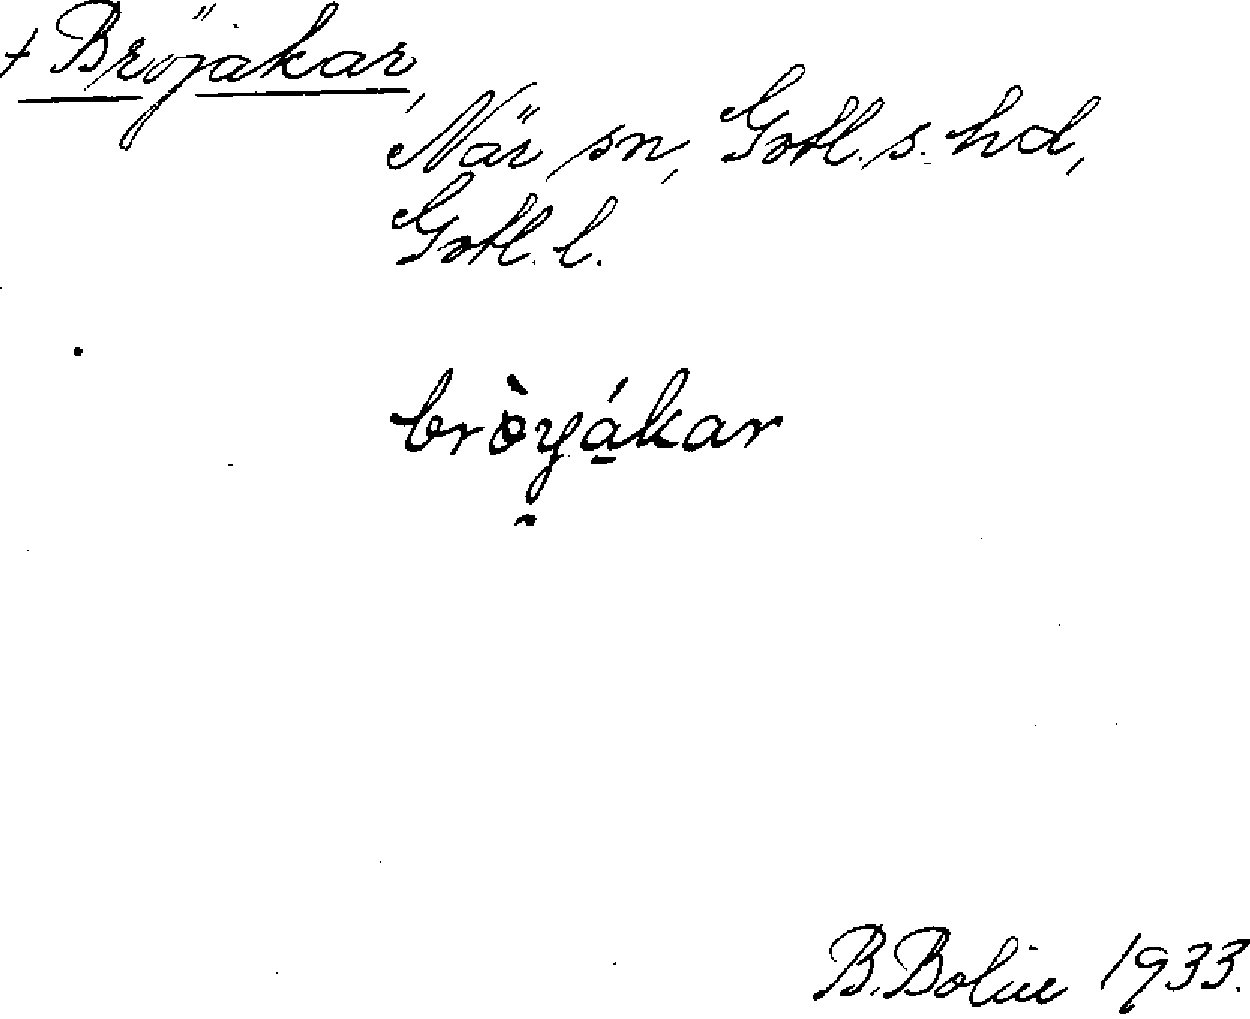 + Bröjåkar,
När sn, Gotl. s. hd,
Gotl. l.
bròyákar
B. Bolin 1933.